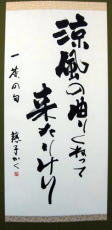 涼風の曲りくねって
来たりけり
一茶の句
子かく